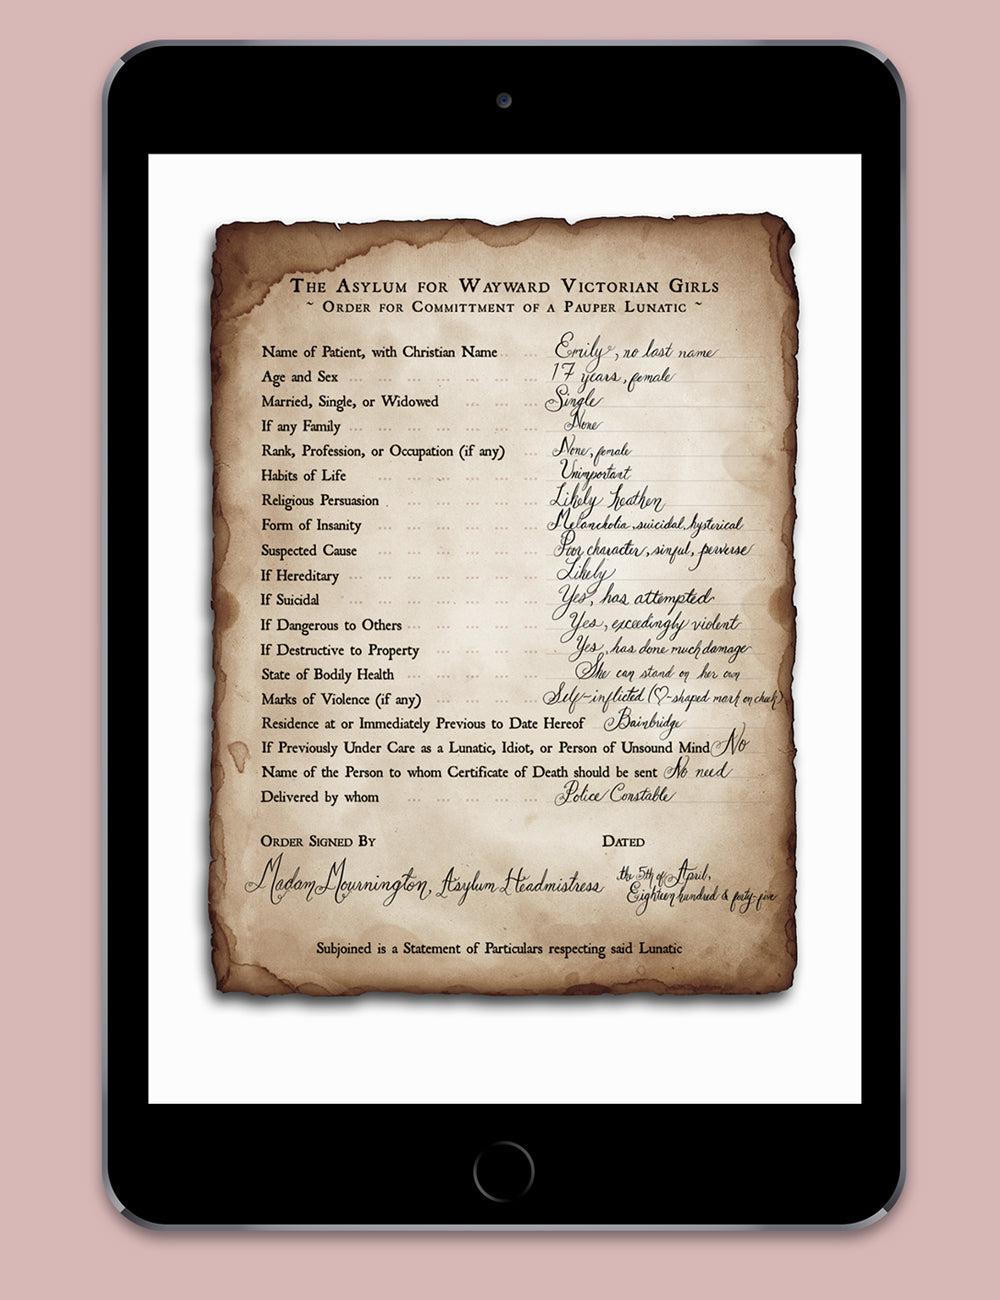 The Asylum for Wayward Victorian Girls
~ Order for Committment of a Pauper Lunatic ~
Name of Patient, with Christian Name Emily, no last name
Age and Sex 17 years, female
Married, Single, or Widowed Single
If any Family None
Rank, Profession, or Occupation (if any) None, female
Habits of Life Unimportant
Religious Persuasion Likely heathen
Form of Insanity Melancholia, suicidal, hysterical
Suspected Cause Poor character, sinful, perverse
If Hereditary Likely
If Suicidal Yes, has attempted
If Dangerous to Others Yes, exceedingly violent
If Destructive to Property Yes, has done much damage
State of Bodily Health She can stand on her own
Marks of Violence (if any) Self-inflicted (♡-shaped mark on cheek)
Residence at or Immediately Previous to Date Hereof Bainbridge
If Previously Under Care as a Lunatic, Idiot, or Person of Unsound Mind No
Name of the Person to whom Certificate of Death should be sent No need
Delivered by whom Police Constable
Order Signed By Dated
Madam Mournington, Asylum Headmistress the 5th of April,
Eighteen hundred & forty-five
Subjoined is a Statement of Particulars respecting said Lunatic